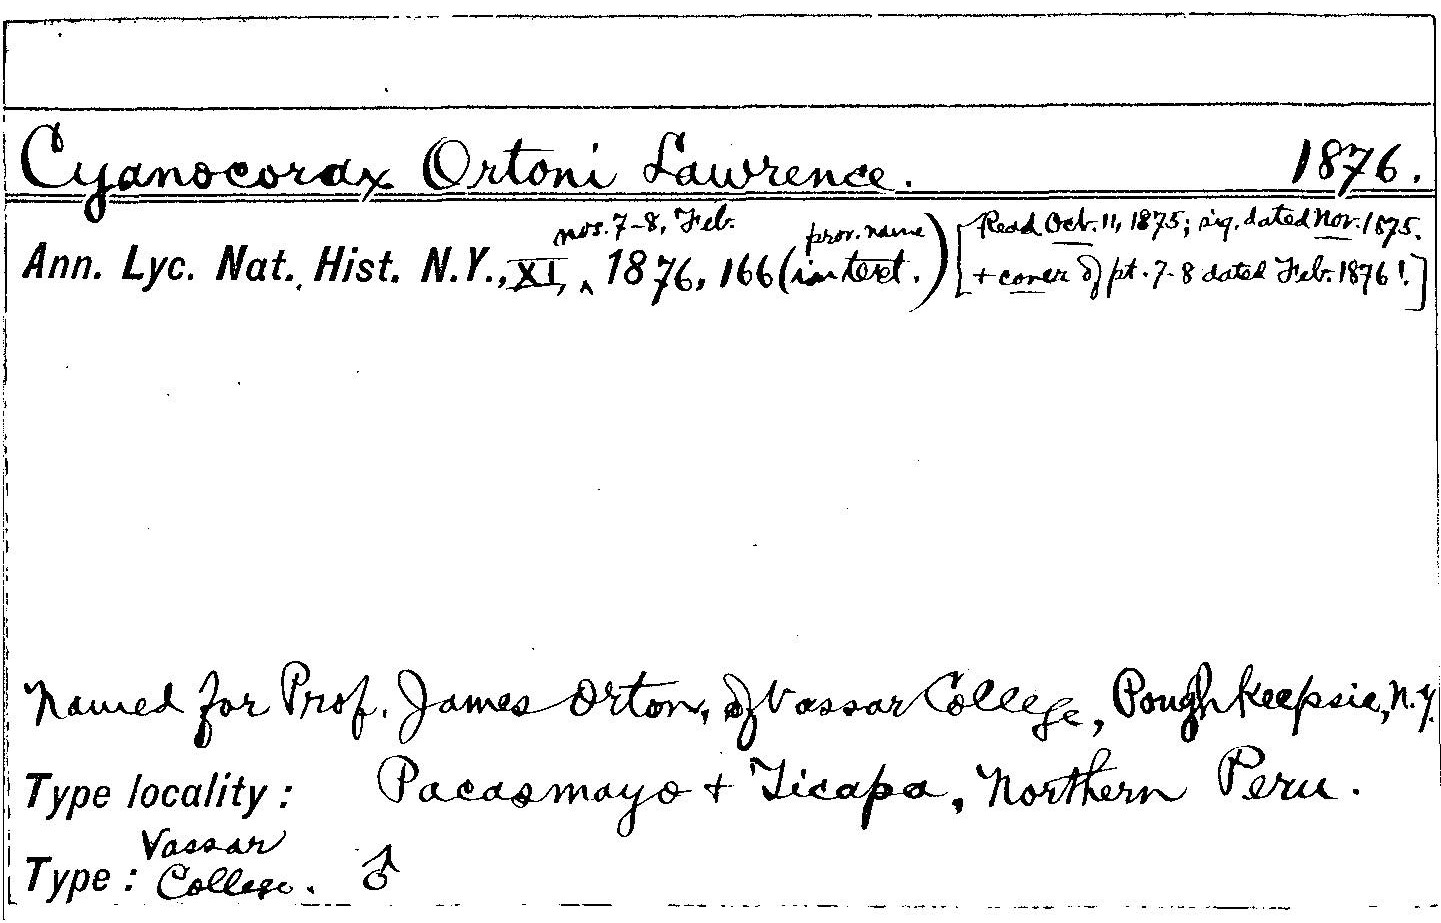 Cyanocorax Ortoni Lawrence. 1876.
nos. 7-8, Feb. prov. name [Read Oct. 11, 1875; sig. dated Nov. 1875.
Ann. Lyc. Nat. Hist. N.Y., XI, ^ 1876, 166 (in text.) + cover of pt. 7-8 dated Feb. 1876!.]
Named for Prof. James Orton, of Vassar College, Poughkeepsie, N.Y.
Type locality: Pacasmayo + Ticapa, Northern Peru.
Vassar
Type: College. ♂